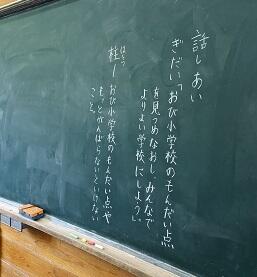 話しあい
ぎだい「おび小学校のもんだい点
を見つめなおし、みんなで
よりよい学校にしよう。」
はしら
柱1 おび小学校のもんだい点や
もっとがんばらないといけない
こと。